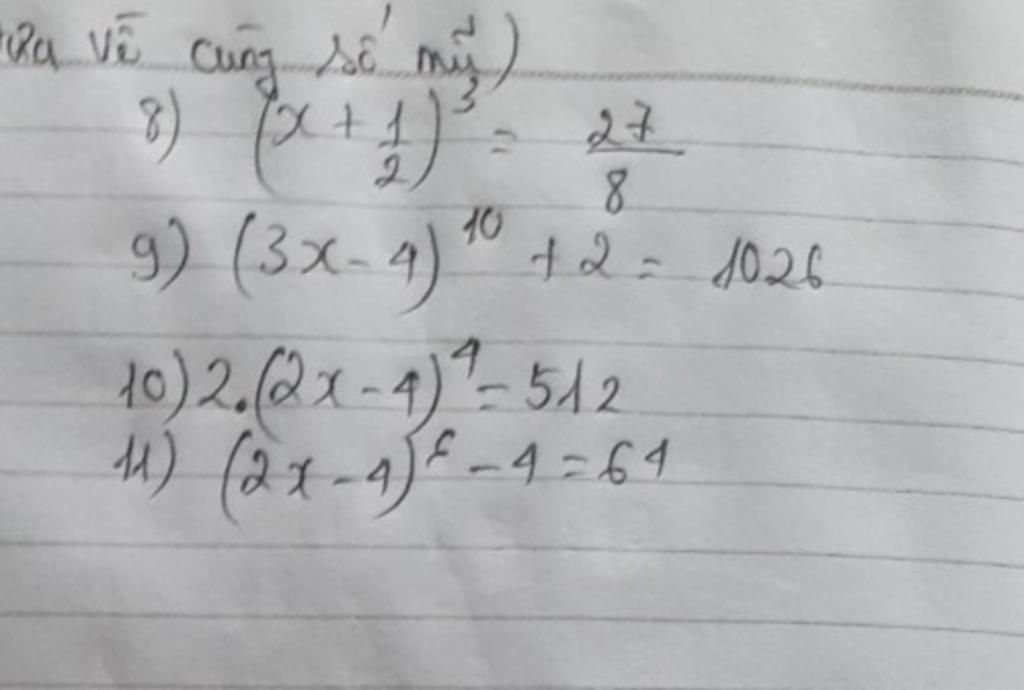 về cùng số mũ)
8) (x + 1/2)^3 = 27/8
9) (3x - 4)^10 + 2 = 1026
10) 2.(2x - 4)^4 = 512
11) (2x - 4) - 4 = 64